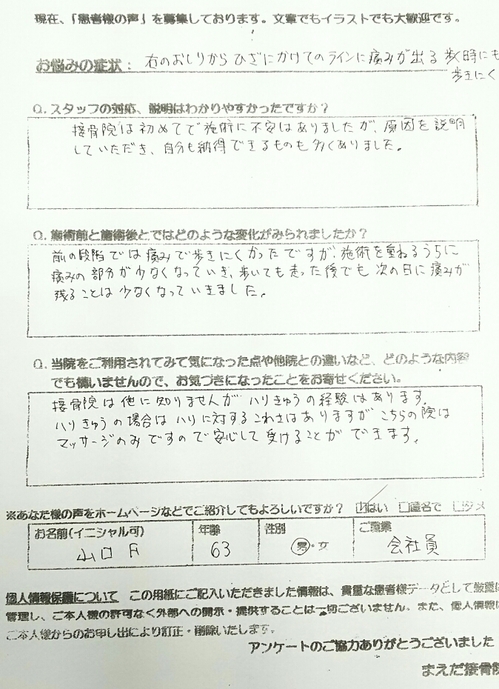 現在、「患者様の声」を募集しております。文章でもイラストでも大歓迎です。
お悩みの症状：右のおしりからひざにかけてのラインに痛みが出る 歩く時にも
歩きにく
Q. スタッフの対応、説明はわかりやすかったですか？
接骨院は初めてで施術に不安はありましたが、原因を説明
していただき、自分も納得できるものも多くありました。
Q. 施術前と施術後とではどのような変化がみられましたか？
前の段階では痛みで歩きにくかったですが、施術を重ねるうちに
痛みの部分が少なくなっていき、歩いても走った後でも次の日に痛みが
残ることは少なくなっていきました。
Q. 当院をご利用されてみて気になった点や他院との違いなど、どのような内容
でも構いませんので、お気づきになったことをお寄せください。
接骨院は他に知りませんがハリきゅうの経験はあります。
ハリきゅうの場合はハリに対するこわさはありますがこちらの院は
マッサージのみですので安心して受けることができます。
※あなた様の声をホームページなどでご紹介してもよろしいですか？ ☑はい □匿名で □ダメ
お名前(イニシャル可) 年齢 性別 ご職業
山口 63 男・女 会社員
個人情報保護について この用紙にご記入いただきました情報は、貴重な患者様データとして厳重に
管理し、ご本人様の許可なく外部への開示・提供することは一切ございません。また、個人情報は
ご本人様からのお申し出により訂正・削除いたします。
アンケートのご協力ありがとうございました
まえだ接骨院